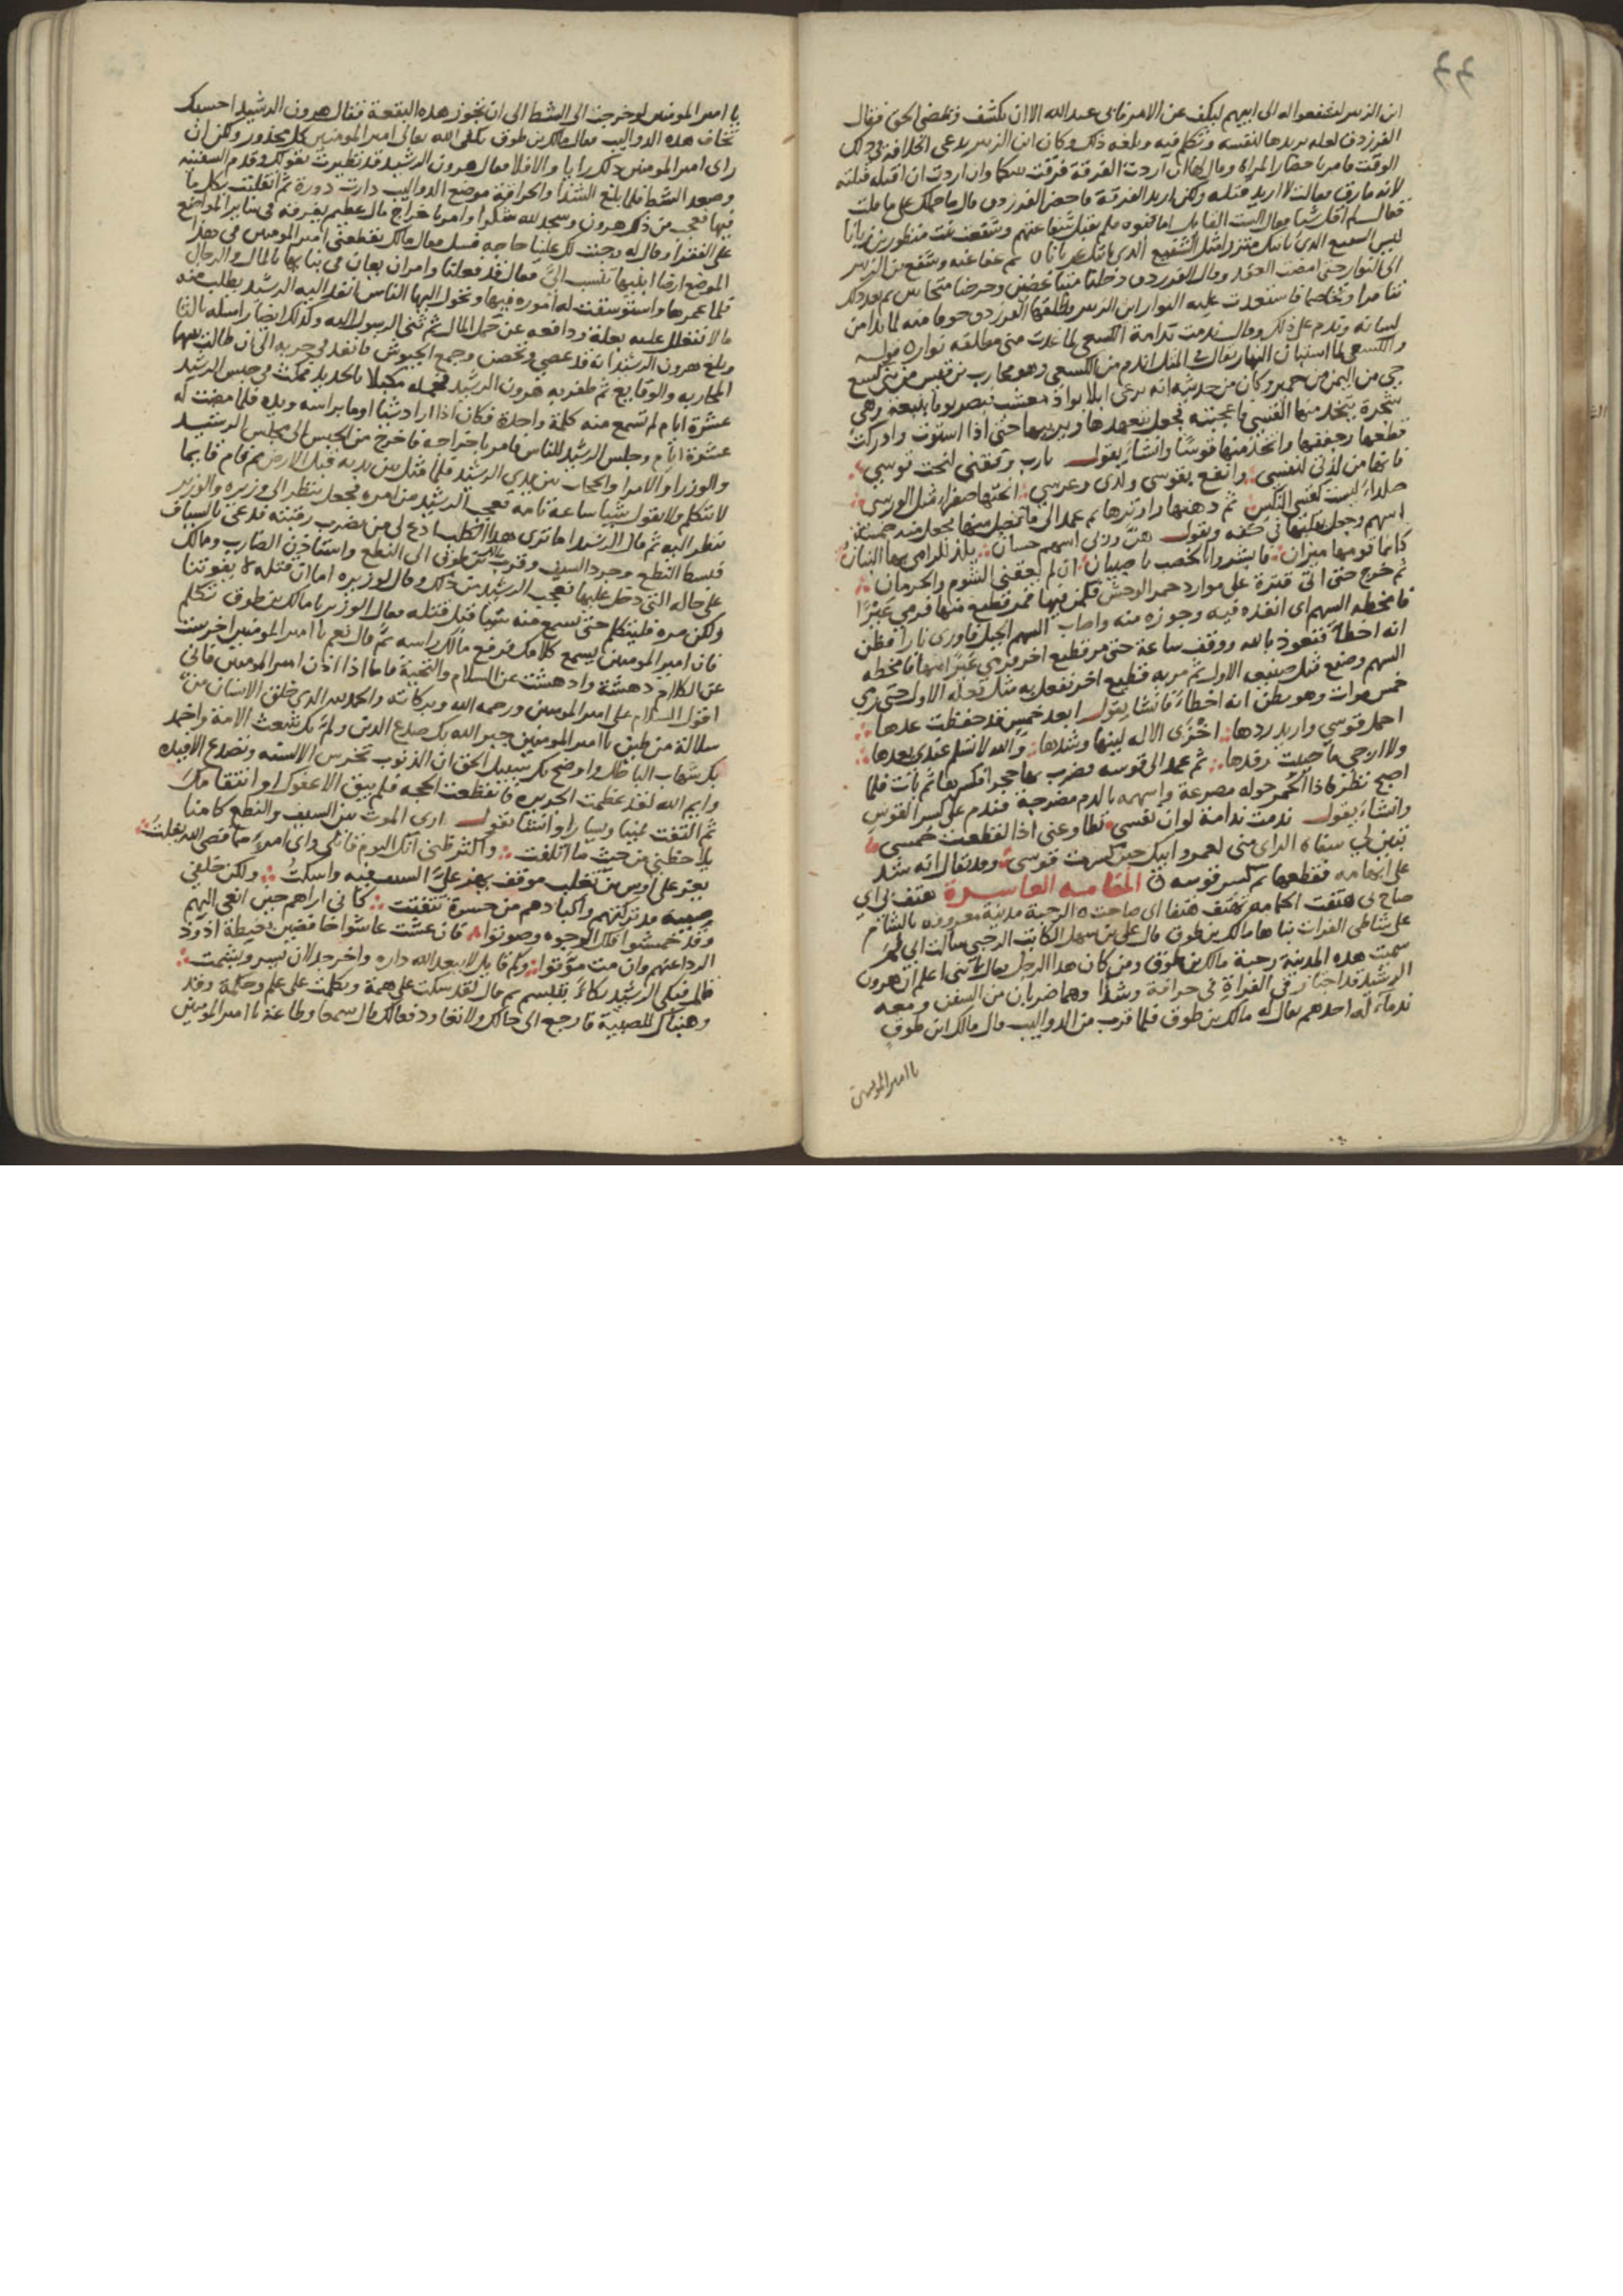 ٤٤
ابن الزبير ليشفعوا له الى ابيهم ليكف عن الامر فاتى عبد الله الا ان يكشف ويمضى الحق فقال
الفرزدق لعله يريدها لنفسه وتكلم فيه وبلغه ذلك وكان ابن الزبير يدعى الخلافة فى ذلك
الوقت فامر باحضار المراة وقال لها ان اردت الفرقة فرقت بينكما وان اردت ان اقتله قتلته
لانه مارق فقالت لا اريد قتله ولكن اريد الفرقة فاحضر الفرزدق قال ما حملك على ما قلت
فقال لم اقل شيا فقال الست القايل اما بنوه فلم يقبل شفاعتهم وشفعت بنت منظور بن زبانا
ليس الشفيع الذى ياتيك متزرا مثل الشفيع الذى ياتيك عريانا ثم عفا عنه وشفع بن الزبير
الى النوار حتى امضت العقد وقال الفرزدق دخلنا متباغضين وخرجنا متحابين ثم بعد ذلك
تنافرا وتخاصما فاستعدت عليه النوار ابن الزبير وطلقها الفرزدق خوفا منه لما بدا من
لسانه وندم على ذلك وقال ندمت ندامة الكسعى لما غدت منى مطلقة نوار ٥ قوله
والكسعى لما استبان النهار يقال فى المثل اندم من الكسعى وهو محارب بن قيس من بنى كسع
حى من اليمن من حمير وكان من حديثه انه يرعى ابلا بواد معشب فبصر يوما بنبعة وهى
شجرة يتخذ منها القسى فاعجبته فجعل يتعهدها ويربيها حتى اذا استوت وادركت
قطعها وجففها واتخذ منها قوسًا وانشاء يقول يا رب وفقنى لنحت قوسى
فانها من لذتى لنفسى وانفع بقوسى ولدى وعرسى انحتها صفراء مثل الورس
صلداء ليست كقسى النكس ثم دهنها واوترها ثم عمد الى ما فضل منها فجعل منه خمسة
اسهم وجعل يقلبها فى كفه ويقول هن وربى اسهم حسان يلذ للرامى بها البنان
كانما قومها ميزان فابشروا بالخصب يا صبيان ان لم يعقنى الشوم والحرمان
ثم خرج حتى اتى قترة على موارد حمر الوحش فكمن فيها فمر قطيع منها فرمى عَيْرًا
فامخطه السهم اى انفذه فيه وجوزه منه واصاب السهم الجبل فاورى نارا فظن
انه اخطا فتعوذ بالله ووقف ساعة حتى مر قطيع اخر فرمى عيرا منها فامخطه
السهم وصنع مثل صنيع الاول ثم مر به قطيع اخر ففعل به مثل فعله الاول حتى رمى
خمس مرات وهو يظن انه اخطاء فانشا يقول ابعد خمس قد حفظت عدها
احمل قوسى واريد ردها اخزى الاله لينها وشدها والله لا تسلم عندى بعدها
ولا ارجى ما حييت رفدها ثم عمد الى قوسه فضرب بها حجرا فكسرها ثم بات فلما
اصبح نظر فاذا الحُمر حوله مصرعة واسهمه بالدم مضرجة فندم على كسر القوس
وانشاء يقول ندمت ندامة لو ان نفسى تطاوعنى اذا لقطعت خمسى
تبين لى سفاه الراى منى لعمرو ابيك حين كسرت قوسى وقد يقال انه شد
على ابهامه فقطعها ثم كسر قوسه المقامه العاسرة هتف بى اى
صاح بى هتفت الحمامه تهتف هتفا اى صاحت ٥ الرحبة مدينة معروفة بالشام
على شاطى الفرات بناها مالك بن طوق قال على بن سهل الكاتب الرحبى سالت ابى لم
سميت هذه المدينة رحبة مالك بن طوق ومن كان هذا الرجل فقال يا بنى اعلم ان هرون
الرشيد قد اجتاز فى الفراة فى حراقة وشذا وهما ضربان من السفن ومعه
ندماء له احدهم يقال له مالك بن طوق فلما قرب من الدواليب قال مالك ابن طوق
يا امير المومنين
يا امير المومنين لو خرجت الى الشط الى ان تجوز هذه البقعة فقال هرون الرشيد احسبك
تخاف هذه الدواليب فقال مالك بن طوق يكفى الله تعالى امير المومنين كل محذور ولكن ان
راى امير المومنين ذلك رايا والا فلا فقال هرون الرشيد قد تطيرت بقولك وقدم السفينه
وصعد الشط فلما بلغ الشذا والحراقة موضع الدواليب دارت دورة ثم انقلبت بكل ما
فيها فعجب من ذلك هرون وسجد لله شكرا وامر باخراج مال عظيم يفرقه فى ساير المواضع
على الفقرا وقال له وجبت لك علينا حاجه فسل فقال مالك يقطعنى امير المومنين فى هذا
الموضع ارضا ابنيها تنسب الىَّ فقال قد فعلنا وامر ان يعان فى بنايها بالمال والرجال
فلما عمرها واستوسقت له اموره فيها وتحول اليها الناس انفذ اليه الرشيد يطلب منه
مالا فتعلل عليه بعلة ودافعه عن حمل المال ثم ثنى الرسول اليه وكذلك ايضا راسله ثالثا
وبلغ هرون الرشيد انه قد عصى وتحصن وجمع الجيوش فانفذ فى حربه الى ان طالت بينهما
المحاربه والوقايع ثم ظفر به هرون الرشيد فحمله مكبلا بالحديد فمكث فى حبس الرشيد
عشرة ايام لم تسمع منه كلمة واحدة وكان اذا اراد شيا اوما براسه ويده فلما مضت له
عشرة ايام وجلس الرشيد للناس فامر باخراجه فاخرج من الحبس الى مجلس الرشيد
والوزرا والامرا والحجاب بين يدى الرشيد فلما مثل بين يديه قبل الارض ثم قام قايما
لا يتكلم ولا يقول شيا ساعة تامة فعجب الرشيد من امره فجعل ينظر الى وزيره والوزير
ينظر اليه ثم قال الرشيد اما ترى هذا الكلب ادع لى من يضرب رقبته فدعى بالسياف
فبسط النطع وجرد السيف وقرب مالك بن طوق الى النطع واستاذن الضارب ومالك
على حاله التى دخل عليها فعجب الرشيد من ذلك وقال لوزيره اما ان قتله لا يفوتنا
ولكن مره فليتكلم حتى نسمع منه شيا قبل قتله فقال الوزير يا مالك بن طوق تكلم
فان امير المومنين ليسمع كلامك فرفع مالك راسه ثم قال نعم يا امير المومنين اخرست
عن الكلام دهشة وادهشت عن السلام والتحية فاما اذا اذن امير المومنين فانى
اقول السلام على امير المومنين ورحمه الله وبركاته والحمد لله الذى خلق الانسان من
سلالة من طين يا امير المومنين جبر الله بك صدع الدين ولم بك شعث الامة واخمد
بك شهاب الباطل واوضح بك سبيل الحق ان الذنوب تخرس الالسنه وتصدع الافيده
وايم الله لقد عظمت الجريره فانقطعت الحجه فلم يبق الا عفوك او انتقامك
ثم التفت يمينا ويسارا وانشا يقول ارى الموت بين السيف والنطع كامنا
يلاحظنى من حيث ما اتلفت واكثر ظنى انك اليوم قاتلى واى امرء مما قضى الله يفلت
يعز على اوس بن تغلب موقف يهز على السيف فيه واسكت ولكن خلفى
صبية قد تركتهم واكبادهم من حسرة تتفتت كانى اراهم حين انعى اليهم
وقد خمشوا تلك الوجوه وصوتوا فان عشت عاشوا خافضين بغبطة اذود
الردا عنهم وان مت موتوا وكم قايل لا يبعد الله داره واخر جدلان يسر ويشمت
قال فبكى الرشيد بكاءً بتبسم ثم قال لقد سكت على همة وتكلمت على علم وحكمة وقد
وهبناك للصبية فارجع الى حالك ولا تعاود فعالك قال سمعا وطاعة يا امير المومنين